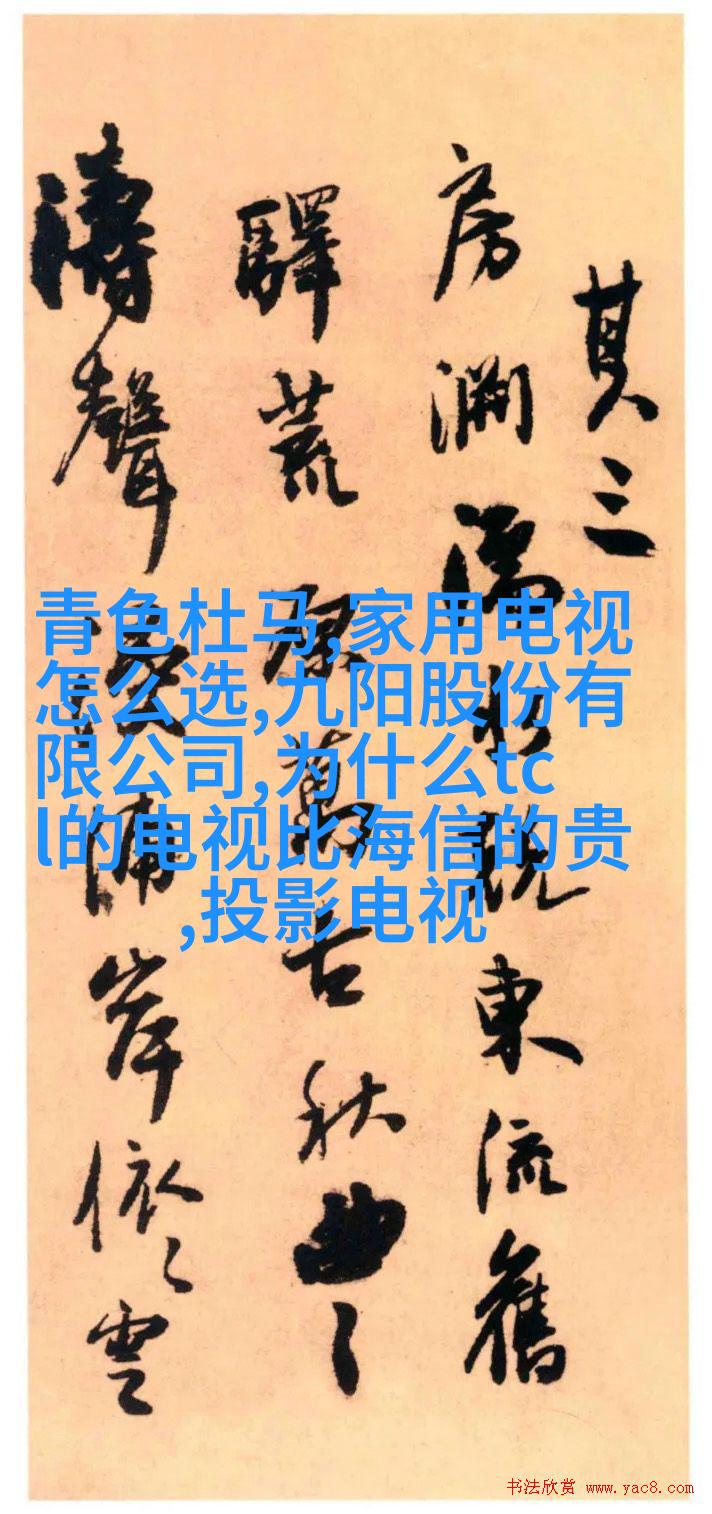 其三
房澗
東流舊
驛荒
萬古秋曲〻
濤聲
浦岸依〻雲
青色杜马,家用电视
怎么选,九阳股份有
限公司,为什么tc
l的电视比海信的贵
,投影电视
书法欣赏 www.yac8.com